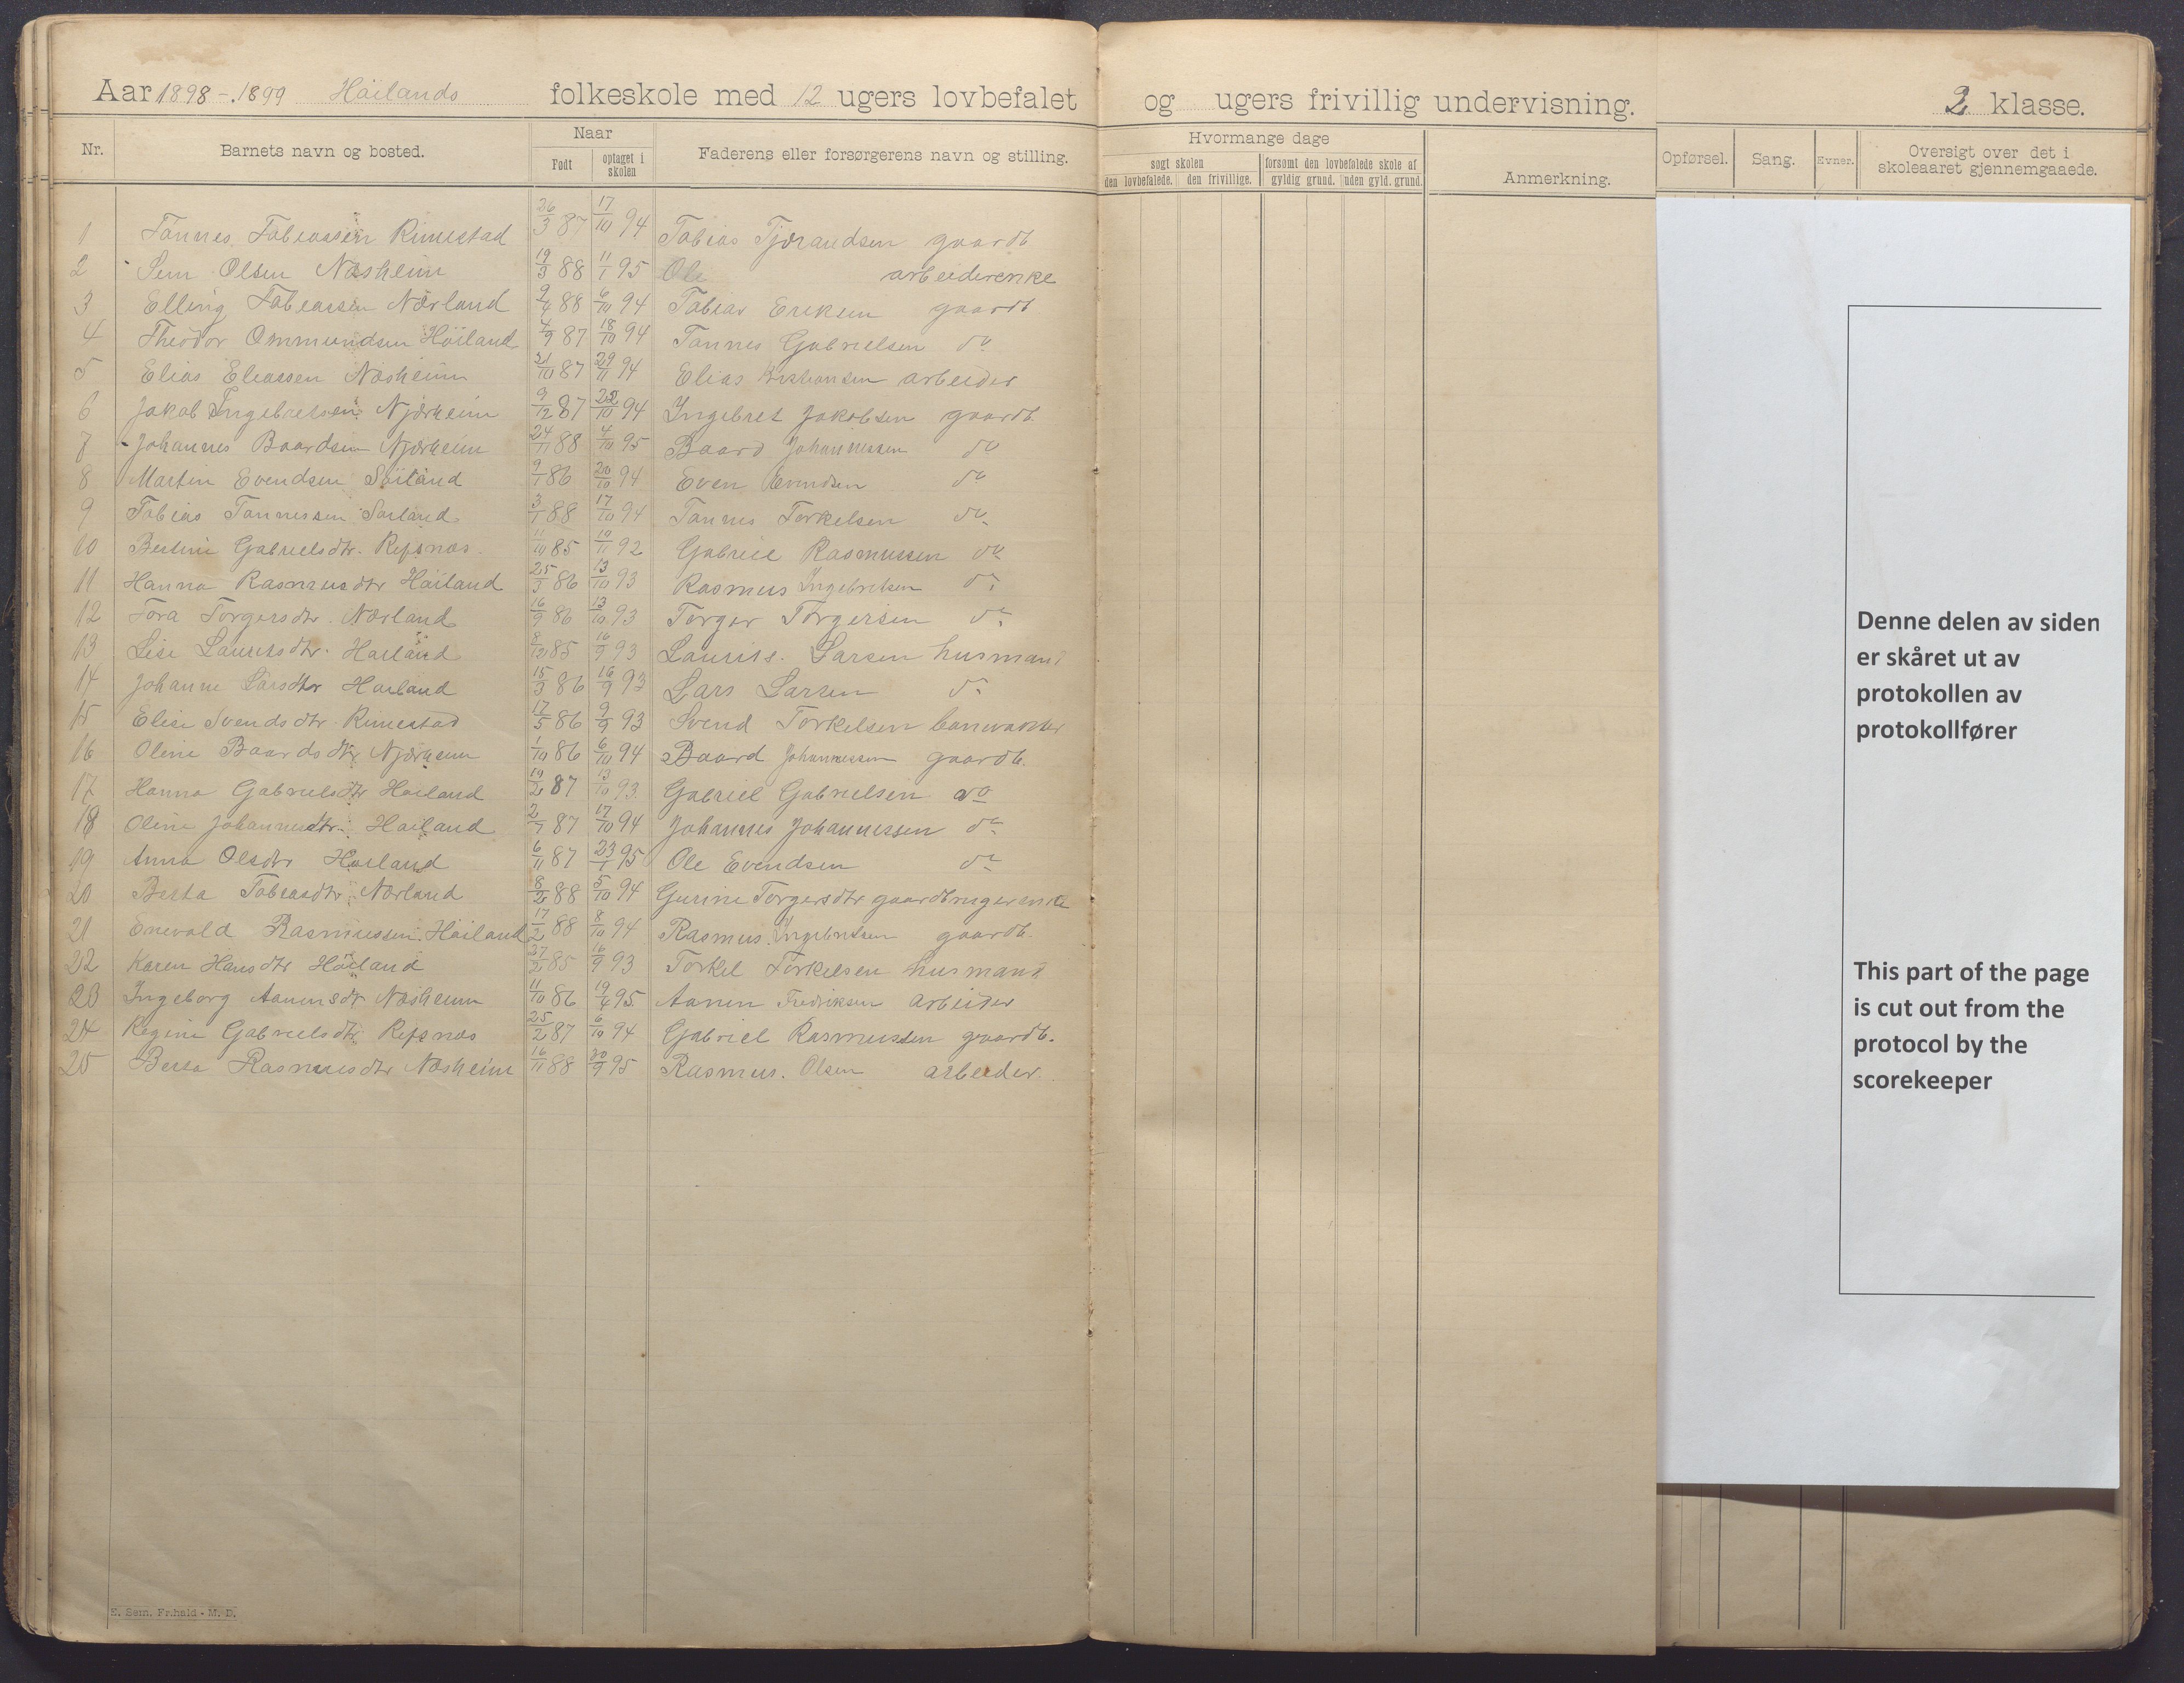 Aar 1898-1899 Höilands folkeskole med 12 ugers lovbefalet og ugers frivillig undervisning. 2 klasse.
Nr. Barnets navn og bosted. Naar Født optaget i skolen Faderens eller forsørgerens navn og stilling. Hvormange dage søgt skolen den lovbefalede. den frivillige. forsømt den lovbefalede skole af gyldig grund. uden gyld. grund. Anmerkning. Opførsel. Sang. Evner. Oversigt over det i skoleaaret gjennemgaaede.
1 Tønnes Tobiassen Rimestad 26/3 87 17/10 94 Tobias Tjørandsen gaardb
2 Sem Olsen Næsheim 19/3 88 11/1 95 Ole arbeiderenke
3 Elling Tobiassen Nærland 88 6/10 94 Tobias Eriksen gaardb
4 Theodor Ommundsen Höiland 4/9 87 18/10 94 Tønnes Gabrielsen do
5 Elias Eliassen Næsheim 21/10 87 29/11 94 Elias arbeider
6 Jakob Ingebretsen Njærheim 9/12 87 22/10 94 Ingebret Jakobsen gaardb.
7 Johannes Baardsen Njærheim 24/11 88 4/10 95 Baard Johannessen do
8 Martin Evendsen Höiland 9/1 86 20/10 94 Even Evendsen do
9 Tobias Tønnessen 3/1 88 17/10 94 Tønnes Torkelsen do
10 Bertine Gabrielsdtr. Refsnæs 11/10 85 92 Gabriel Rasmussen do
11 Hanna Rasmusdtr Höiland 25/3 86 13/10 93 Rasmus Ingebretsen do
12 Tora Torgersdtr. Nærland 16/9 86 13/10 93 Torger Torgersen do
13 Lise Lauritsdtr. Höiland 8/12 85 16/9 93 Laurits Larsen husmand
14 Johanne Larsdtr Höiland 15/3 86 16/9 93 Lars Larsen do
15 Elise Svendsdtr Rimestad 17/5 86 9/9 93 Svend Torkelsen banevokter
16 Oline Baardsdtr Njærheim 1/10 86 6/10 94 Baard Johannessen gaardb.
17 Hanna Gabrielsdtr Höiland 19/2 87 13/10 93 Gabriel Gabrielsen do
18 Oline Johannesdtr. Höiland 2/7 87 17/10 94 Johannes Johannessen do
19 Anna Olsdtr Höiland 6/11 87 23/1 95 Ole Evendsen do
20 Berta Tobiasdtr Nærland 8/2 88 5/10 94 Gurine Torgersdtr gaardbrugerenke
21 Enevald Rasmussen Höiland 17/2 88 8/10 94 Rasmus Ingebretsen gaardb.
22 Karen Hansdtr Höiland 27/2 85 16/9 93 Torkel Torkelsen husmand
23 Ingeborg Aanensdtr Næsheim 11/10 86 19/4 95. Aanen Fredriksen arbeider
24 Regine Gabrielsdtr Refsnæs 25/2 87 6/10 94 Gabriel Rasmussen gaardb.
25 Berta Rasmusdtr Næsheim 16/11 88 20/9 95 Rasmus. Olsen arbeider.
Denne delen av siden
er skåret ut av
protokollen av
protokollfører
This part of the page
is cut out from the
protocol by the
scorekeeper
E. Sem. Fr.hald - M. D.